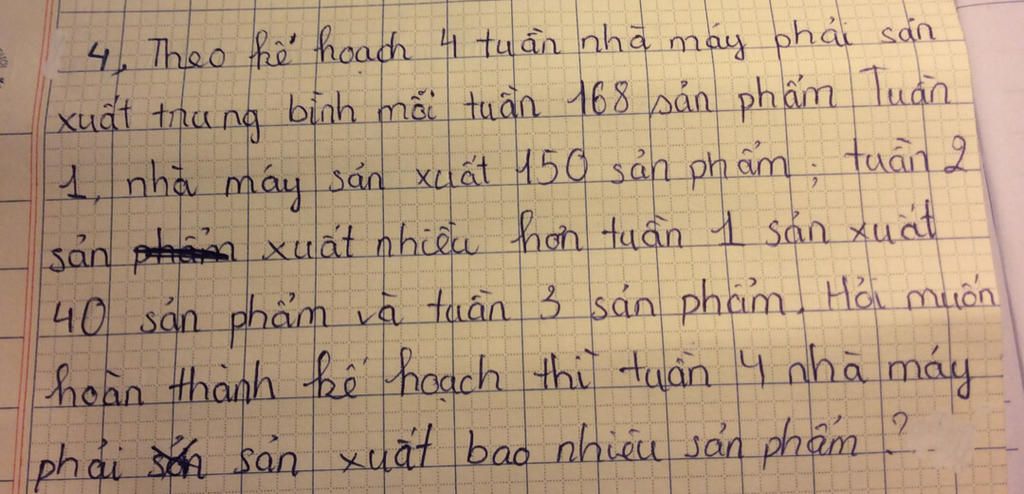 4, Theo kế hoạch 4 tuần nhà máy phải sản
xuất trung bình mỗi tuần 168 sản phẩm Tuần
1, nhà máy sản xuất 150 sản phẩm; tuần 2
sản xuất nhiều hơn tuần 1 sản xuất
40 sản phẩm và tuần 3 sản phẩm. Hỏi muốn
hoàn thành kế hoạch thì tuần 4 nhà máy
phải sản xuất bao nhiêu sản phẩm?